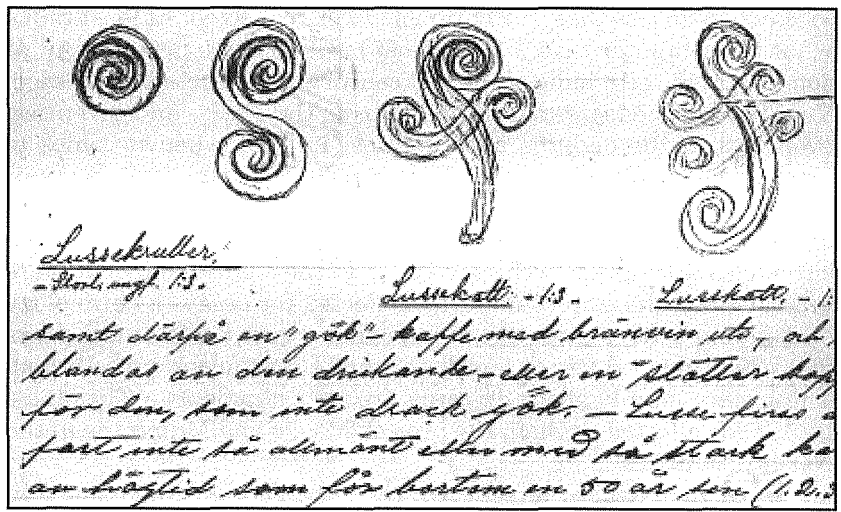 Lussekruller.
- Storl. ungf. 1:3.
Lussekatt. - 1:3 -
Lussekatt. - 1:
samt därpå en "gök" - kaffe med bränvin uti,
blandas av den drickande - eller en slätter kopp
för den, som inte drack gök. - Lusse firas
fast inte så allmänt eller med så stark
av högtid som för bortom en 50 år sen (1.2.3